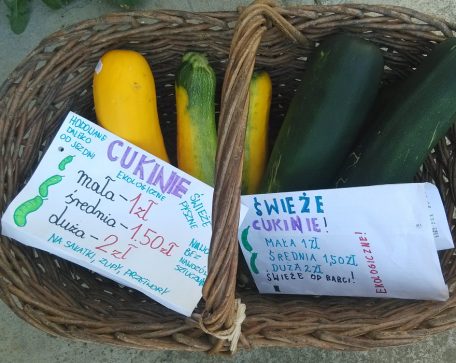 HODOWANE
DALEKO
OD JEZDNI
CUKINIE
EKOLOGICZNE
mała - 1zł
średnia - 1,50zł
duża - 2zł
ŚWIEŻE
PYSZNE
NAWET
BEZ
NAWOZÓW
SZTUCZNYCH
NA SAŁATKI, ZUPY, PRZETWORY
ŚWIEŻE
CUKINIE!
MAŁA 1ZŁ
ŚREDNIA 1,50ZŁ
DUŻA 2ZŁ
ŚWIEŻE OD BABCI!
EKOLOGICZNE!